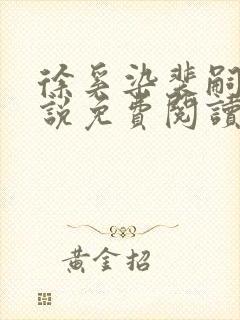 徐奚染裴嗣
說免費閱讀
黃金招